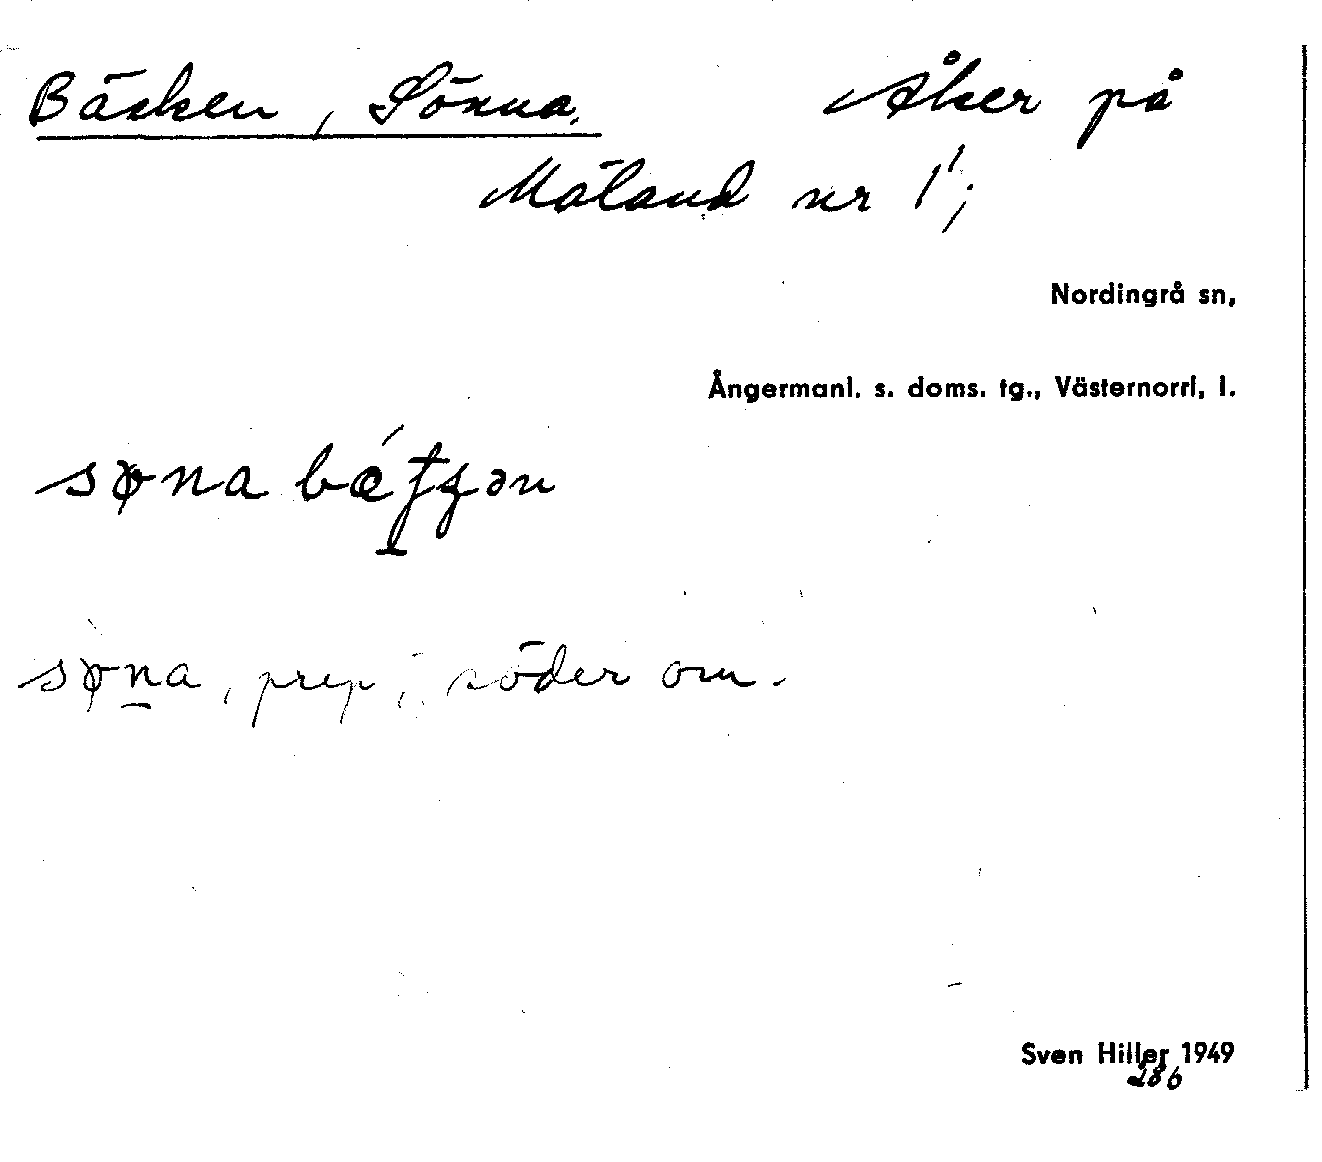 Bäcken, Sönna. Åker på
Mäland nr 1¹;
Nordingrå sn,
Ångermanl. s. doms. tg., Västernorrl, l.
søna
søna, prep; söder om.
Sven Hiller 1949
286